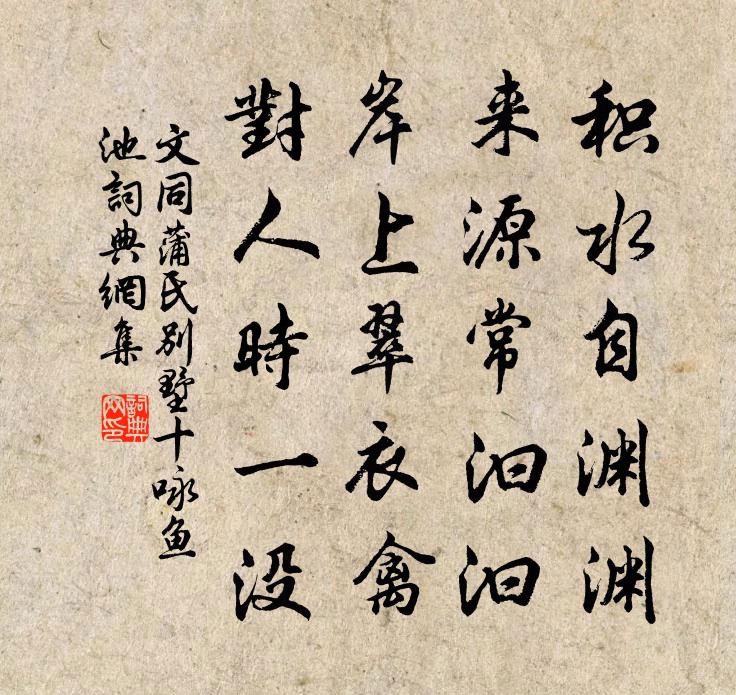 积水自渊渊
来源常汩汩
岸上翠衣禽
對人時一没
文同蒲氏别墅十咏鱼
池詞典網集
詞典
网印